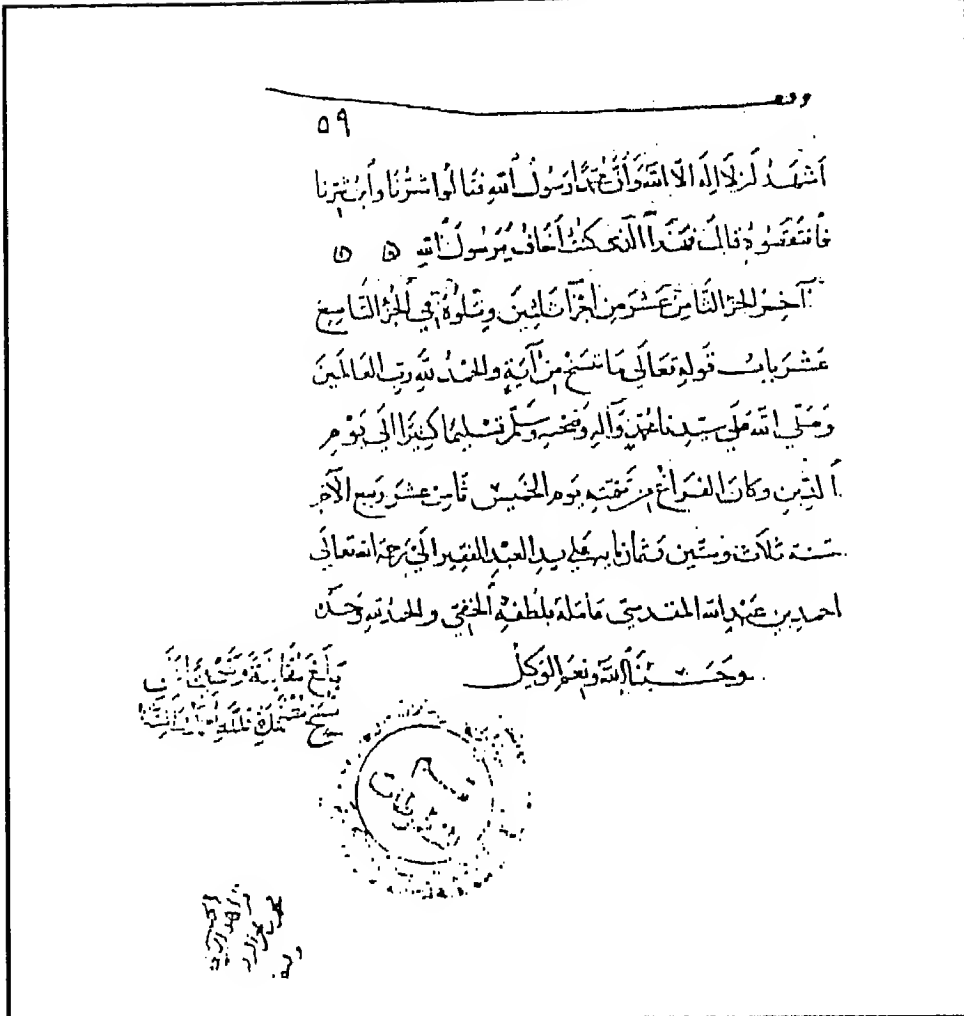 وقف
٥٩
أَشْهَدُ أَن لَا إِلَهَ إِلَّا اللهُ وَأَنَّ مُحَمَّدًا رَسُولُ اللهِ فَقَالُوا شَرُّنَا وَابْنُ شَرِّنَا
فَانْتَقَصُوهُ قَالَ فَهَذَا الَّذِي كُنْتُ أَخَافُ يَا رَسُولَ اللهِ ۵ ۵
آخِرُ الجُزْءِ الثَّامِنَ عَشَرَ مِنْ أَجْزَاءِ ثَلَاثِينَ وَيَتْلُوهُ فِي الجُزْءِ التَّاسِعَ
عَشَرَ بَابُ قَوْلِهِ تَعَالَى مَا نَنْسَخْ مِنْ آيَةٍ وَالحَمْدُ لِلَّهِ رَبِّ العَالَمِينَ
وَصَلَّى اللهُ عَلَى سَيِّدِنَا مُحَمَّدٍ وَآلِهِ وَصَحْبِهِ وَسَلَّمَ تَسْلِيمًا كَثِيرًا إِلَى يَوْمِ
الدِّينِ وَكَانَ الفَرَاغُ مِنْ يَوْمَ الخَمِيسِ ثَامِنَ عَشَرَ رَبِيعِ الآخِرِ
سنة ثَلَاثٍ وَسِتِّينَ وَثَمَانمايه عَلَى يَدِ العَبْدِ الفَقِيرِ إِلَى رَحْمَةِ الله تَعَالَى
احمد بن عَبْدِ الله المقدسي عَامَلَهُ بِلُطْفِهِ الخَفِيِّ وَالحَمْدُ لِلَّهِ وَحْدَهُ
وَحَسْبُنَا اللهُ وَنِعْمَ الوَكِيلُ
بَلَغَ مُقَابَلَةً